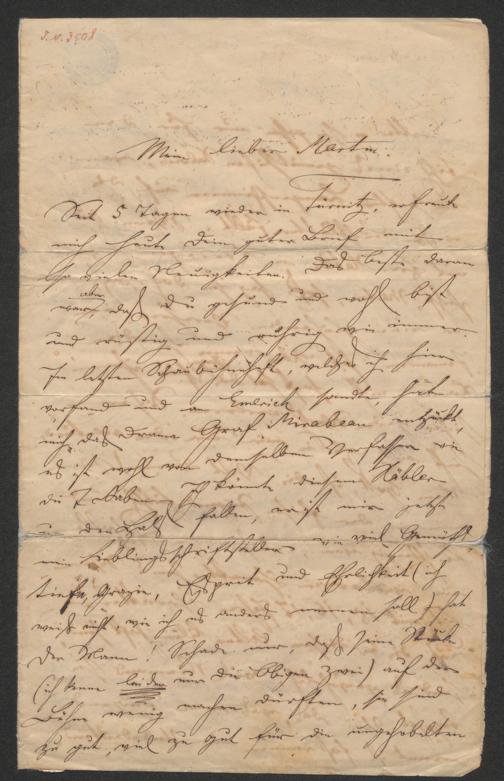 J.N. 3908
Mein lieber Martin.
Seit 5 Tagen wieder in Türnitz, erfreute
mich heute Dein guter Brief mit
so vielen Neuigkeiten. Das beste daran
aber
war, daß Du gesund und wohl bist
und rüstig und rührig wie immer
Im letzten Schaubühnheft, welches ich hier
vorfand und an Emlrich sandte, hat
mich das Drama Graf Mirabeau entzückt,
es ist wohl von demselben Verfasser wie
die 7 Raben. Ich könnte diesem
um den Hals fallen, er ist mir jetzt
ein Lieblingsschriftsteller wie viel Gemüth
tiefe, Grazie, Esprit und Ehrlichkeit (ich
weiß nicht, wie ich es anders nennen soll) hat
der Mann! Schade nur, daß seine Stücke
(ich kenne leider nur die Obigen zwei) auf der
Bühne wenig machen dürften, sie sind
zu gut, viel zu gut für die ungehobelten